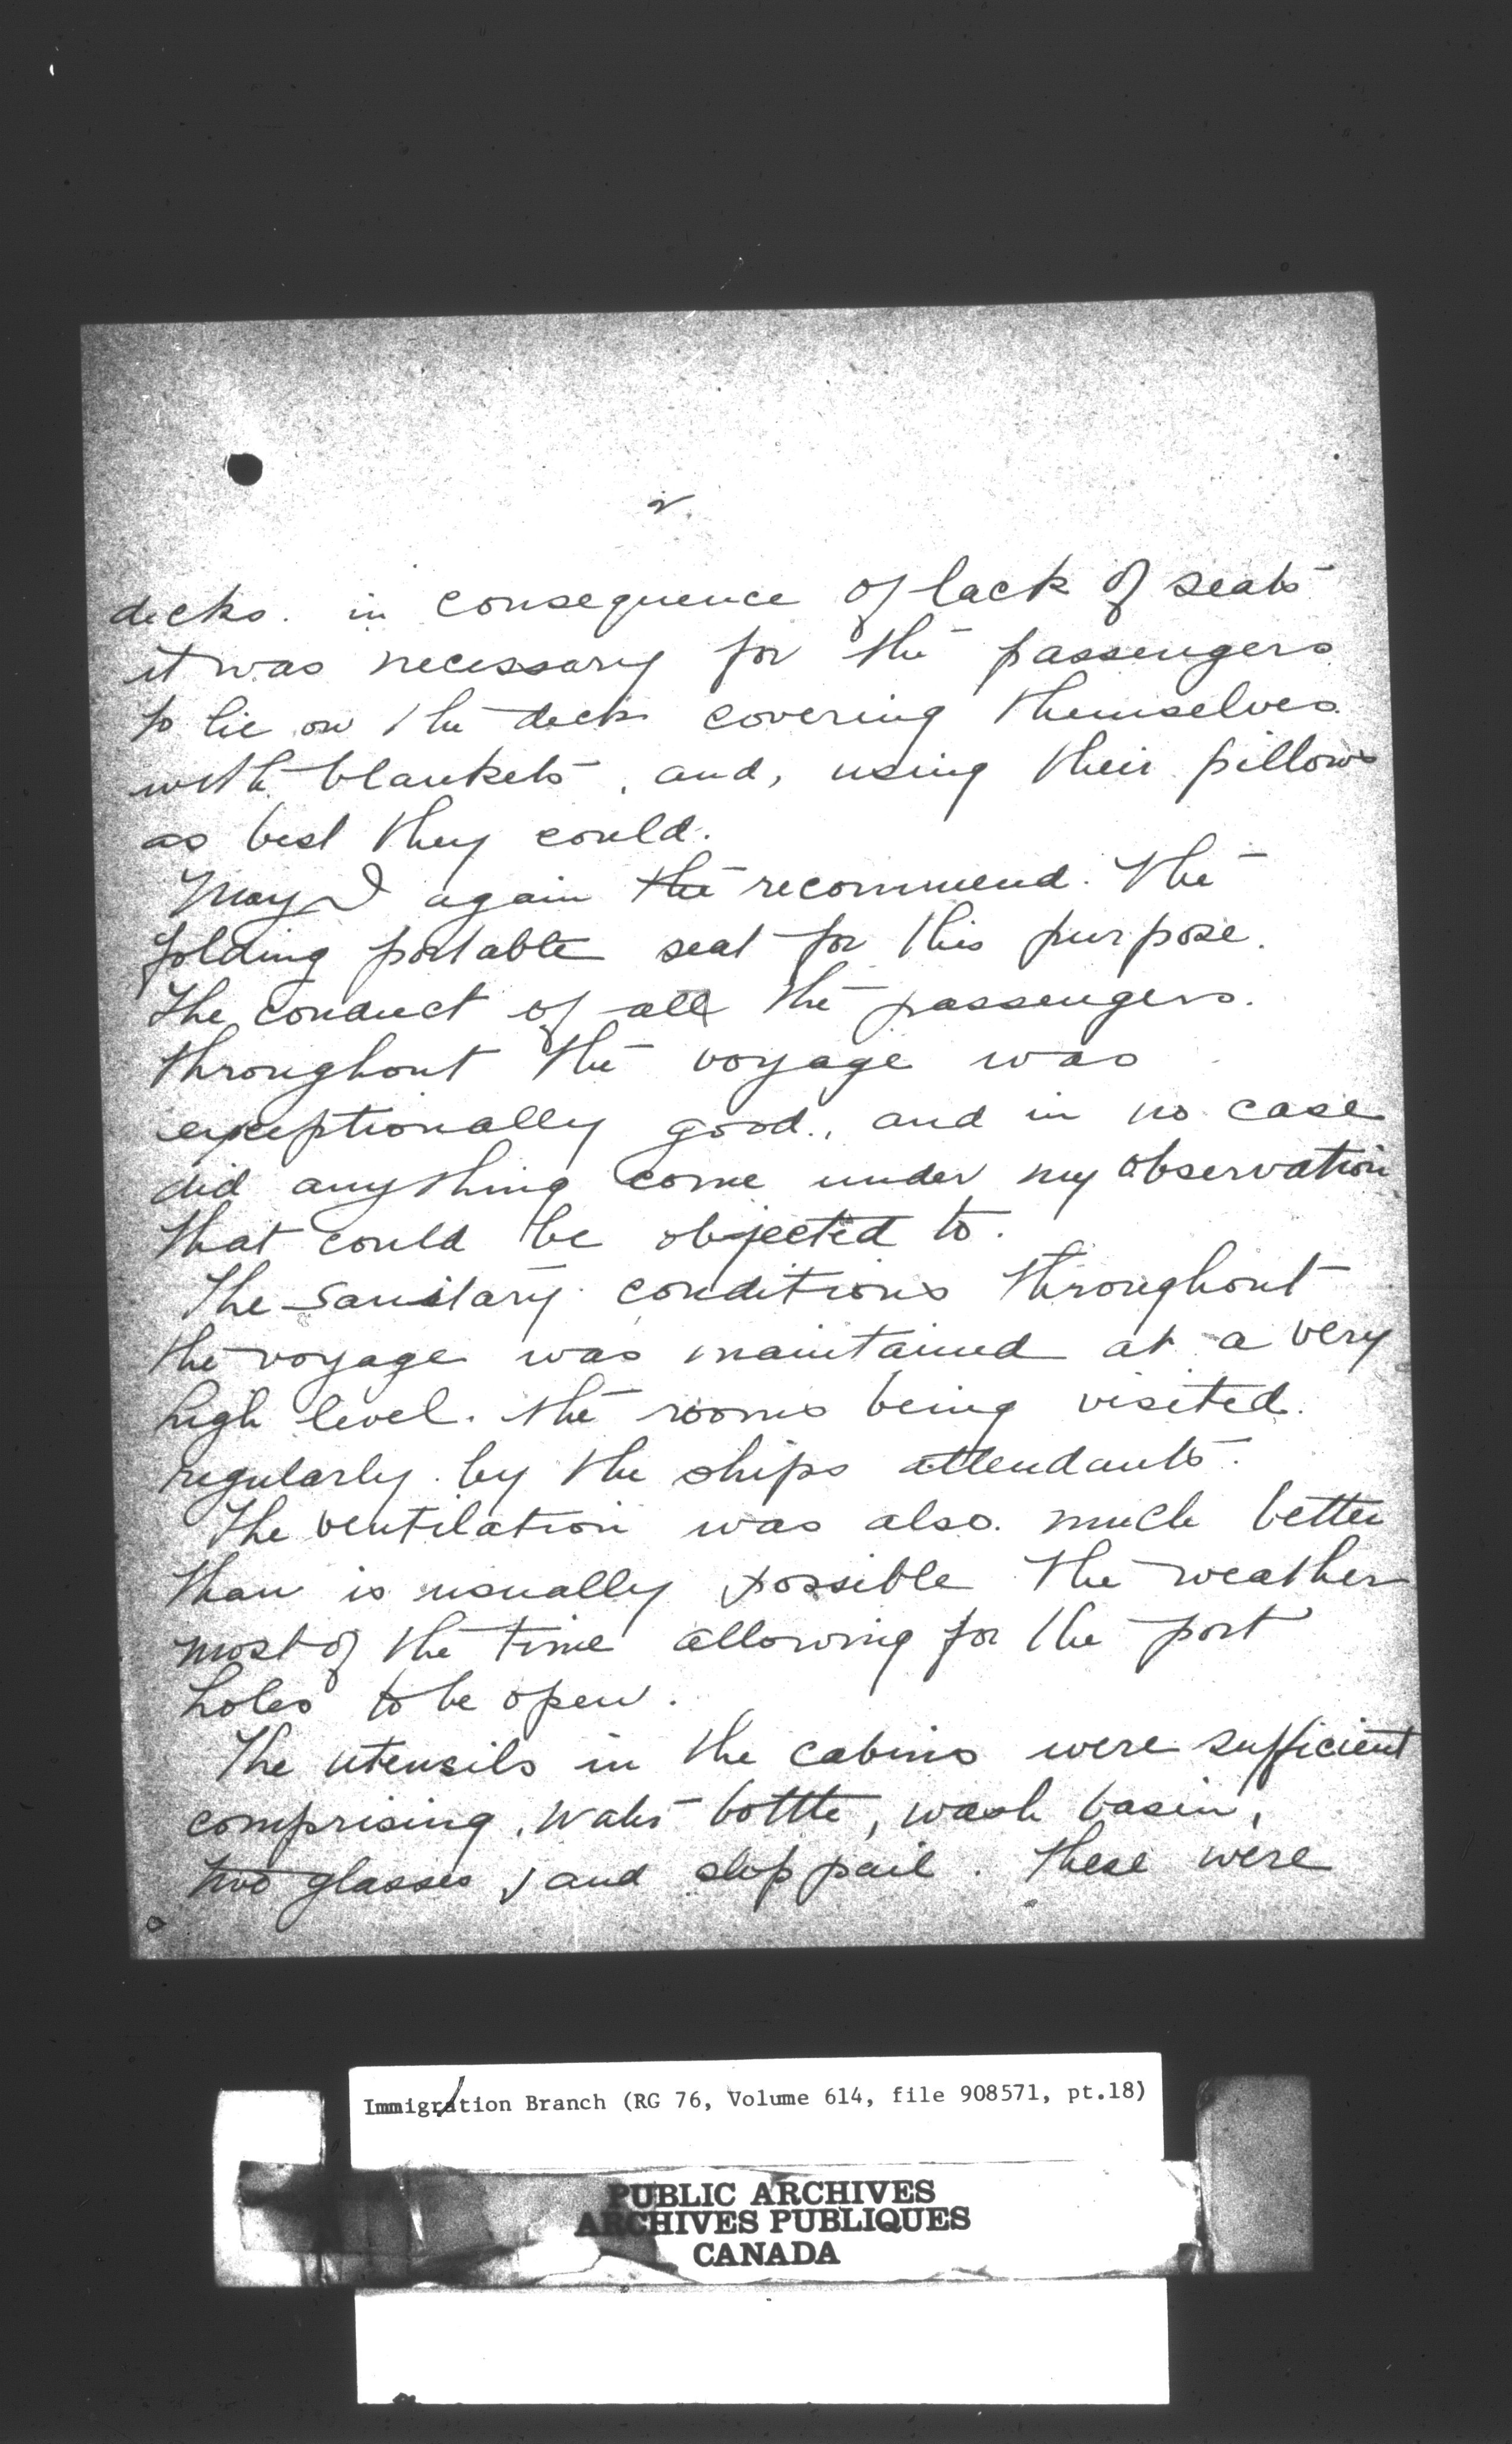 2.
decks. in consequence of lack of seats
it was necessary for the passengers
to lie on the decks covering themselves
with blankets, and, using their pillows
as best they could.
May I again the recommend. The
folding portable seat for this purpose.
The conduct of all the passengers.
throughout the voyage was
exceptionally good., and in no case
did anything come under my observation
that could be objected to.
The sanitary conditions throughout
the voyage was maintained at a very
high level. the rooms being visited.
regularly. by the ships attendants.
The ventilation was also. much better
than is usually possible the weather
most of the time allowing for the port
holes to be open.
The utensils in the cabins were sufficient
comprising, water bottle, wash basin,
two glasses, and slop pail. These were
Immigration Branch (RG 76, Volume 614, file 908571, pt.18)
PUBLIC ARCHIVES
ARCHIVES PUBLIQUES
CANADA